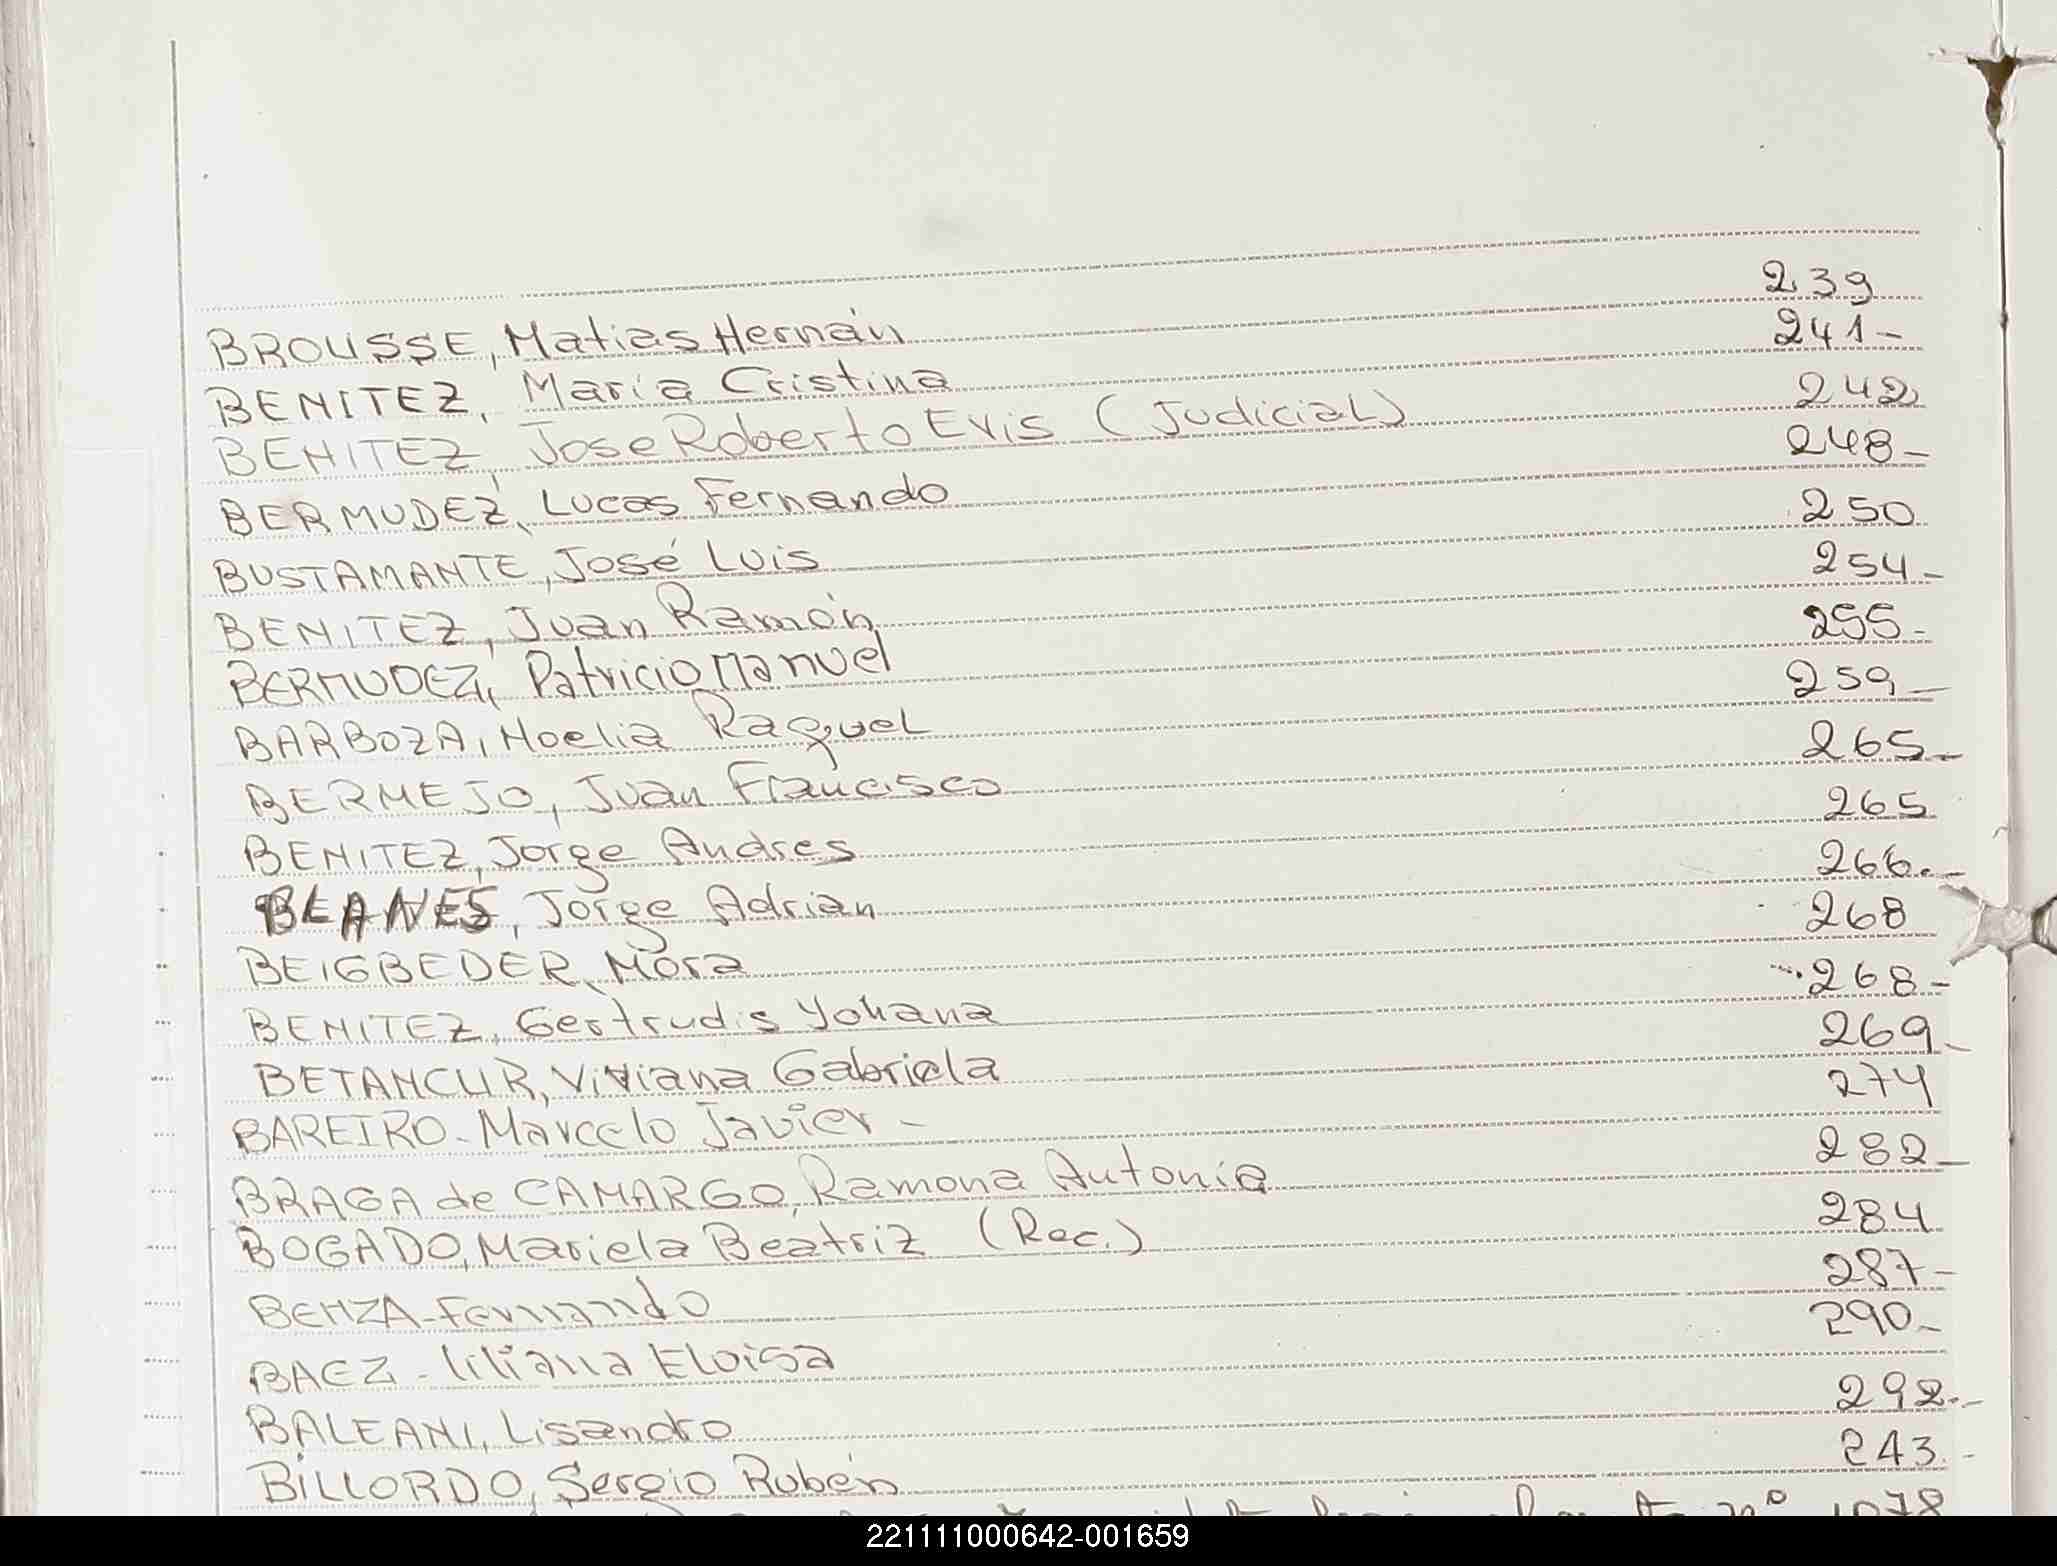 BROUSSE, Matias Hernán 239
BENITEZ, Maria Cristina 241-
BENITEZ, Jose Roberto Evis (Judicial) 242
BERMUDEZ, Lucas Fernando 248-
BUSTAMANTE, José Luis 250
BENITEZ, Juan Ramón 254-
BERMUDEZ, Patricio Manuel 255-
BARBOZA, Noelia Raquel 259-
BERMEJO, Juan Francisco 265-
BENITEZ, Jorge Andres 265
BLANES, Jorge Adrian 266.-
BEIGBEDER, Mora 268
BENITEZ, Gertrudis Yohana 268-
BETANCUR, Viviana Gabriela 269-
BAREIRO- Marcelo Javier- 274
BRAGA de CAMARGO, Ramona Antonia 282-
BOGADO, Mariela Beatriz (Rec.) 284
BENZA-Fernando 287-
BAEZ- liliana Eloisa 290-
BALEANI, Lisandro 292.-
BILLORDO, Sergio Rubén 243.-
nº 1078
221111000642-001659